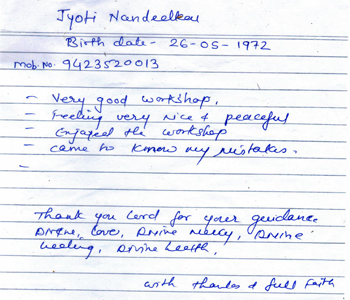 Jyoti Nandedkar
Birth date - 26-05-1972
Mob. No. 9423520013
- Very good workshop.
- Feeling very nice & peaceful
- Enjoyed the workshop
- came to know my mistakes.
-
Thank you Lord for your guidance
Divine, Love, Divine Mercy, Divine
healing, Divine health.
with thanks & full faith